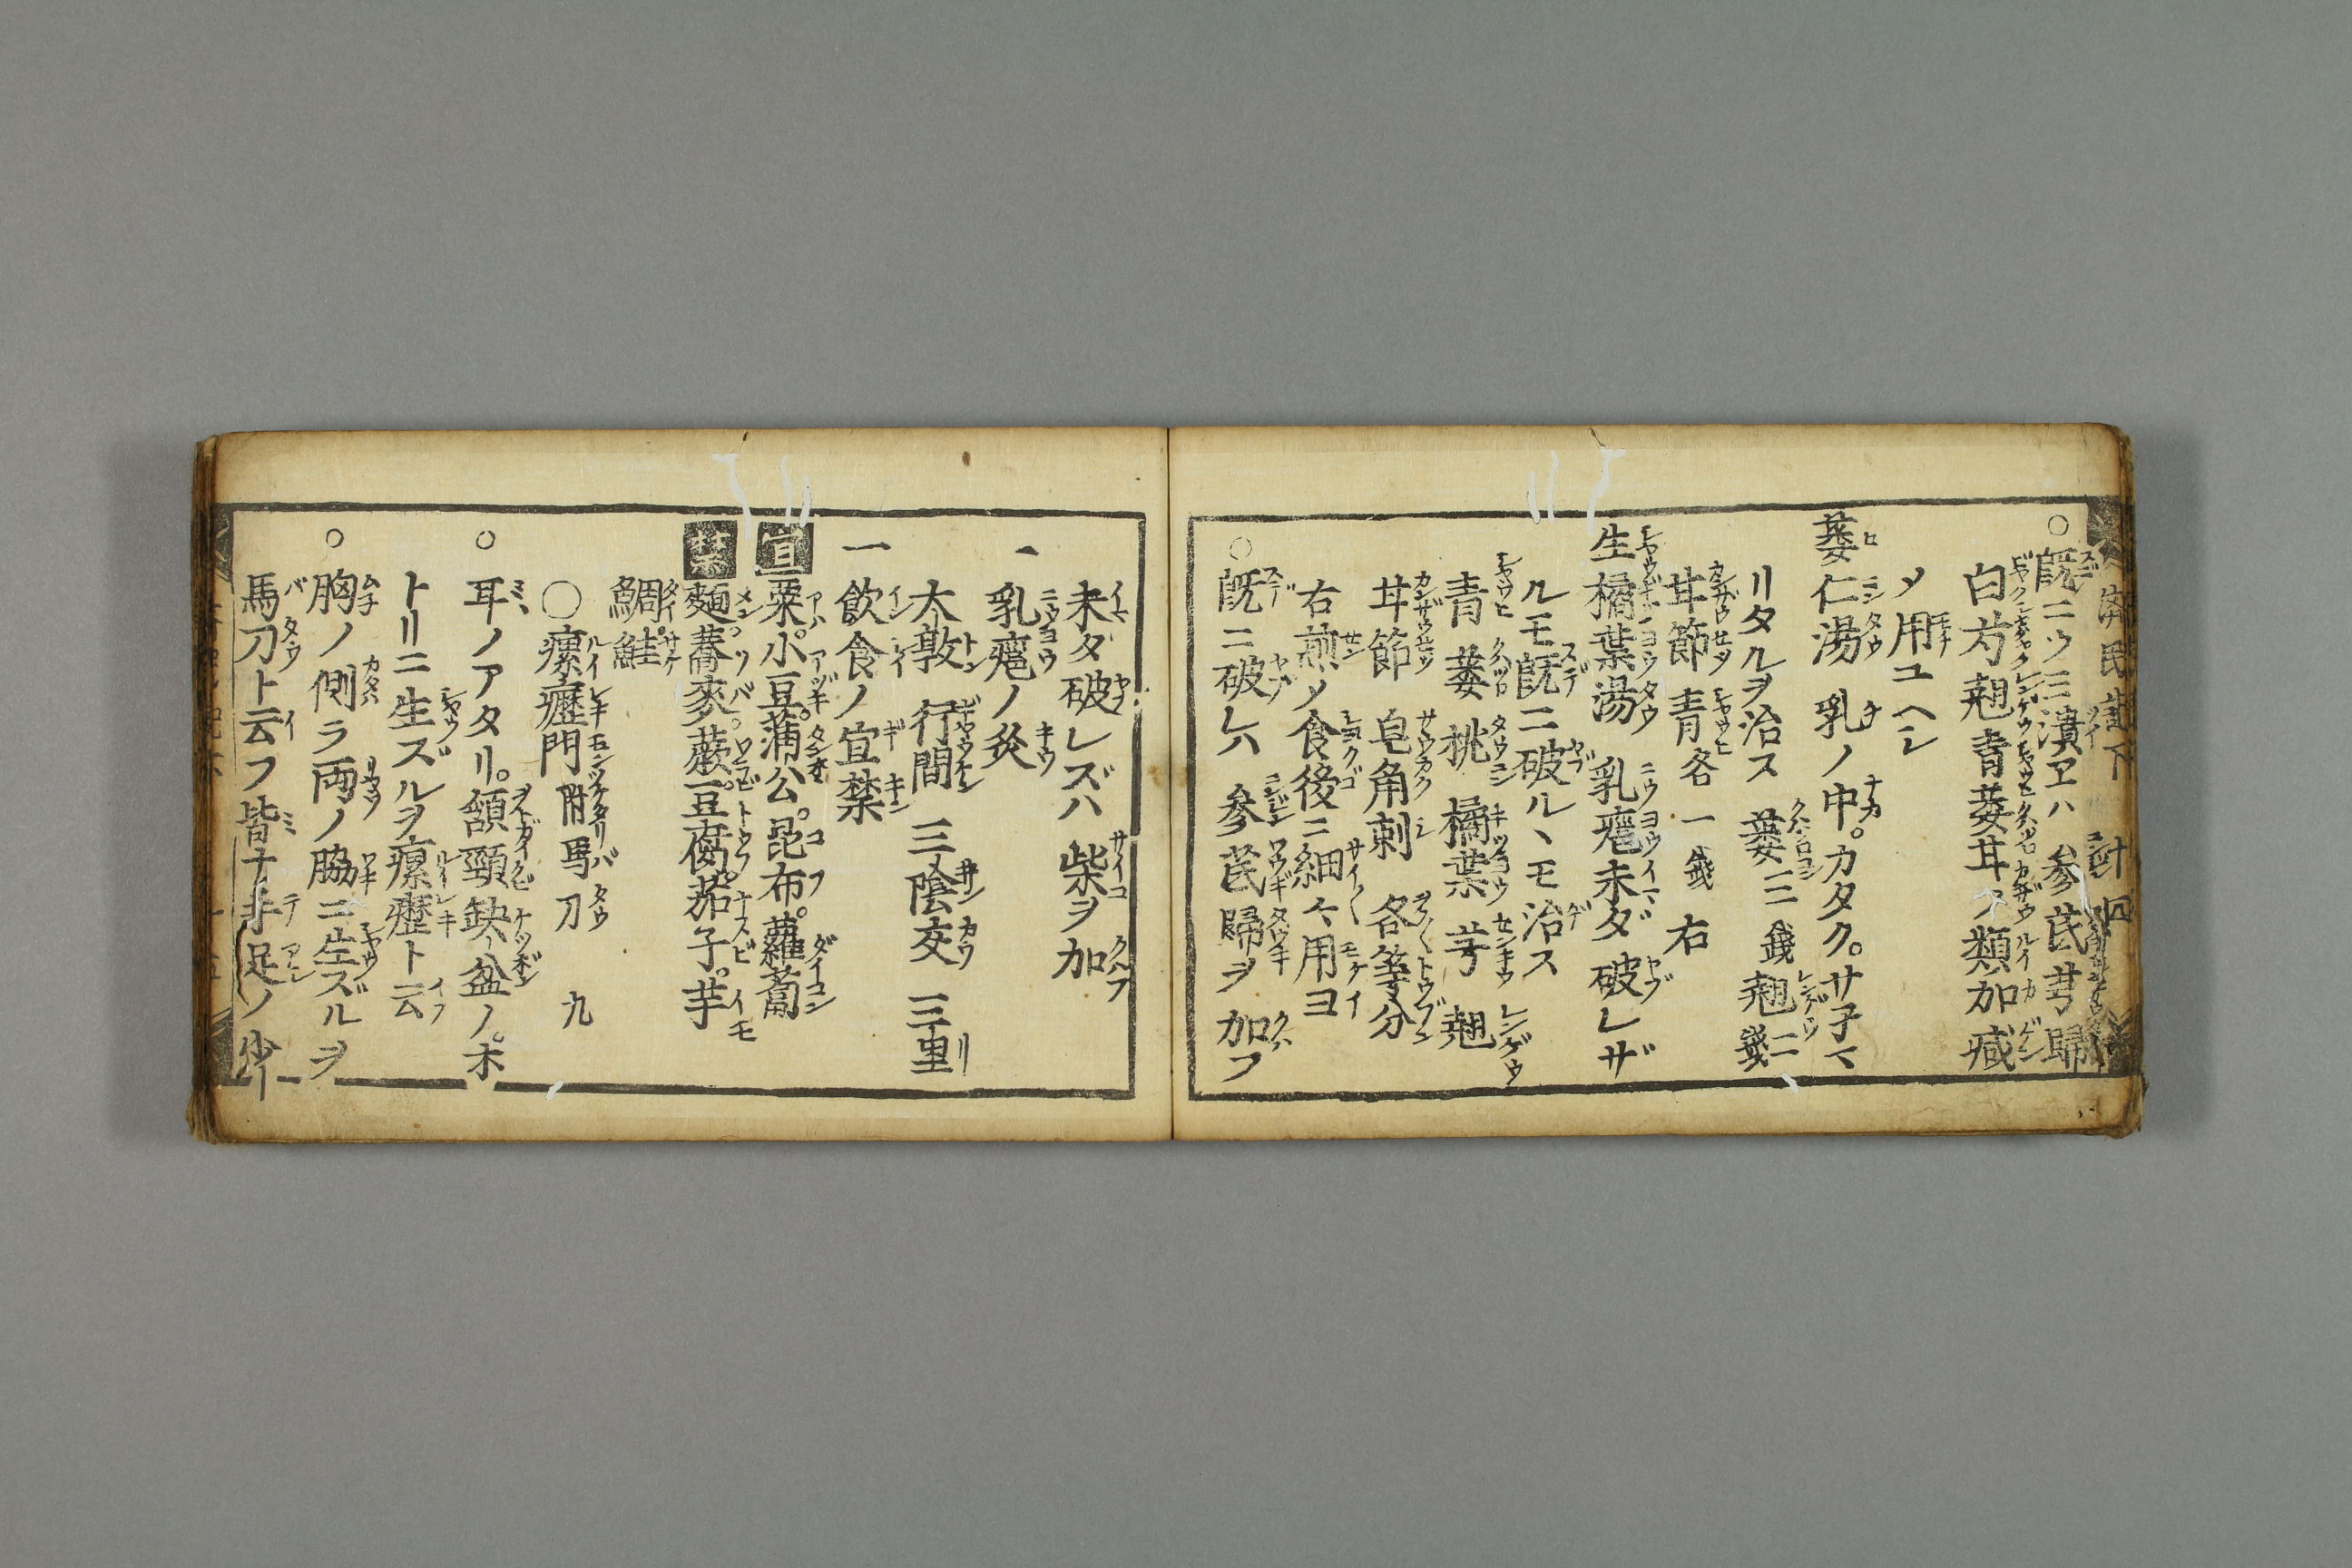 ○既ニツニ潰ヱハ参芪芎歸
白芍翹青蔞甘ノ類加减
メ用ユヘシ
蔞仁湯 乳ノ中。カタク。サ子マ
リタルヲ治ス 蔞三錢翹二錢
甘節青各一錢 右
生橘葉湯 乳癰未ダ破レザ
ルモ既ニ破ル、モ治ス
青 蔞 桃 橘葉 芎 翹
甘節 皂角刺 各等分
右煎メ食後ニ細々用ヨ
○既ニ破レハ 参芪歸ヲ加フ
未ダ破レズハ 柴ヲ加
一 乳癰ノ灸
太敦 行間 三陰交 三里
一 飲食ノ宜禁
宜 粟。小豆。蒲公。昆布。蘿蔔
禁 麺。蕎麥。蕨。豆腐。茄子。芋
鯛。鮭
○瘰癧門 附馬刀 九
○耳ノアタリ。頷頸缺盆ノ。ホ
トリニ生ズルヲ瘰癧ト云
○胸ノ側ラ両ノ脇ニ生ズルヲ
馬刀ト云フ皆ナ手足ノ少